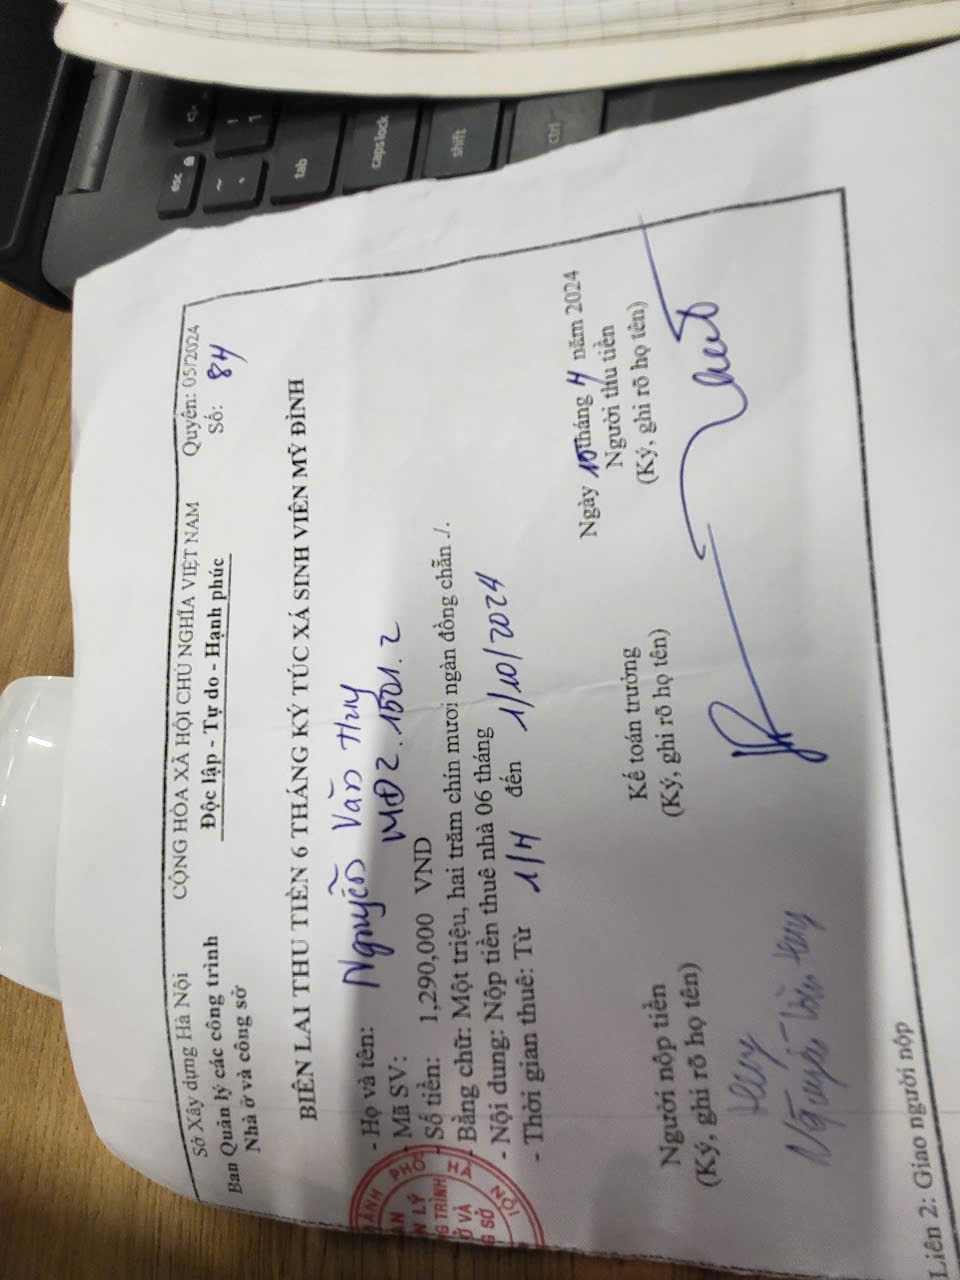 esc
~
`
!
1
tab
caps lock
shift
ctrl
Sở Xây dựng Hà Nội
Ban Quản lý các công trình
Nhà ở và công sở
CỘNG HÒA XÃ HỘI CHỦ NGHĨA VIỆT NAM
Độc lập - Tự do - Hạnh phúc
Quyển: 05/2024
Số: 84
BIÊN LAI THU TIỀN 6 THÁNG KÝ TÚC XÁ SINH VIÊN MỸ ĐÌNH
- Họ và tên: Nguyễn Văn Huy
- Mã SV: MĐ2.1501.2
- Số tiền: 1,290,000 VND
- Bằng chữ: Một triệu, hai trăm chín mươi ngàn đồng chẵn ./.
- Nội dung: Nộp tiền thuê nhà 06 tháng
- Thời gian thuê: Từ 1/4 đến 1/10/2024
Ngày 10 tháng 4 năm 2024
Người nộp tiền
(Ký, ghi rõ họ tên)
Kế toán trưởng
(Ký, ghi rõ họ tên)
Người thu tiền
(Ký, ghi rõ họ tên)
Huy
Nguyễn Văn Huy
ÀNH PHỐ HÀ
NỘI
AN
N LÝ
G TRÌNH
Ở VÀ
G SỞ
Liên 2: Giao người nộp